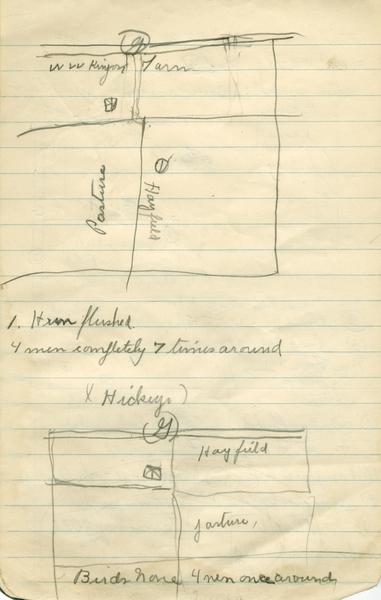 W W Kingons Farm
Pasture
Hayfield
1. Hun flushed.
4 men completely 7 times around
( Hickeys )
Hayfield
Pasture,
Birds None 4 men once around